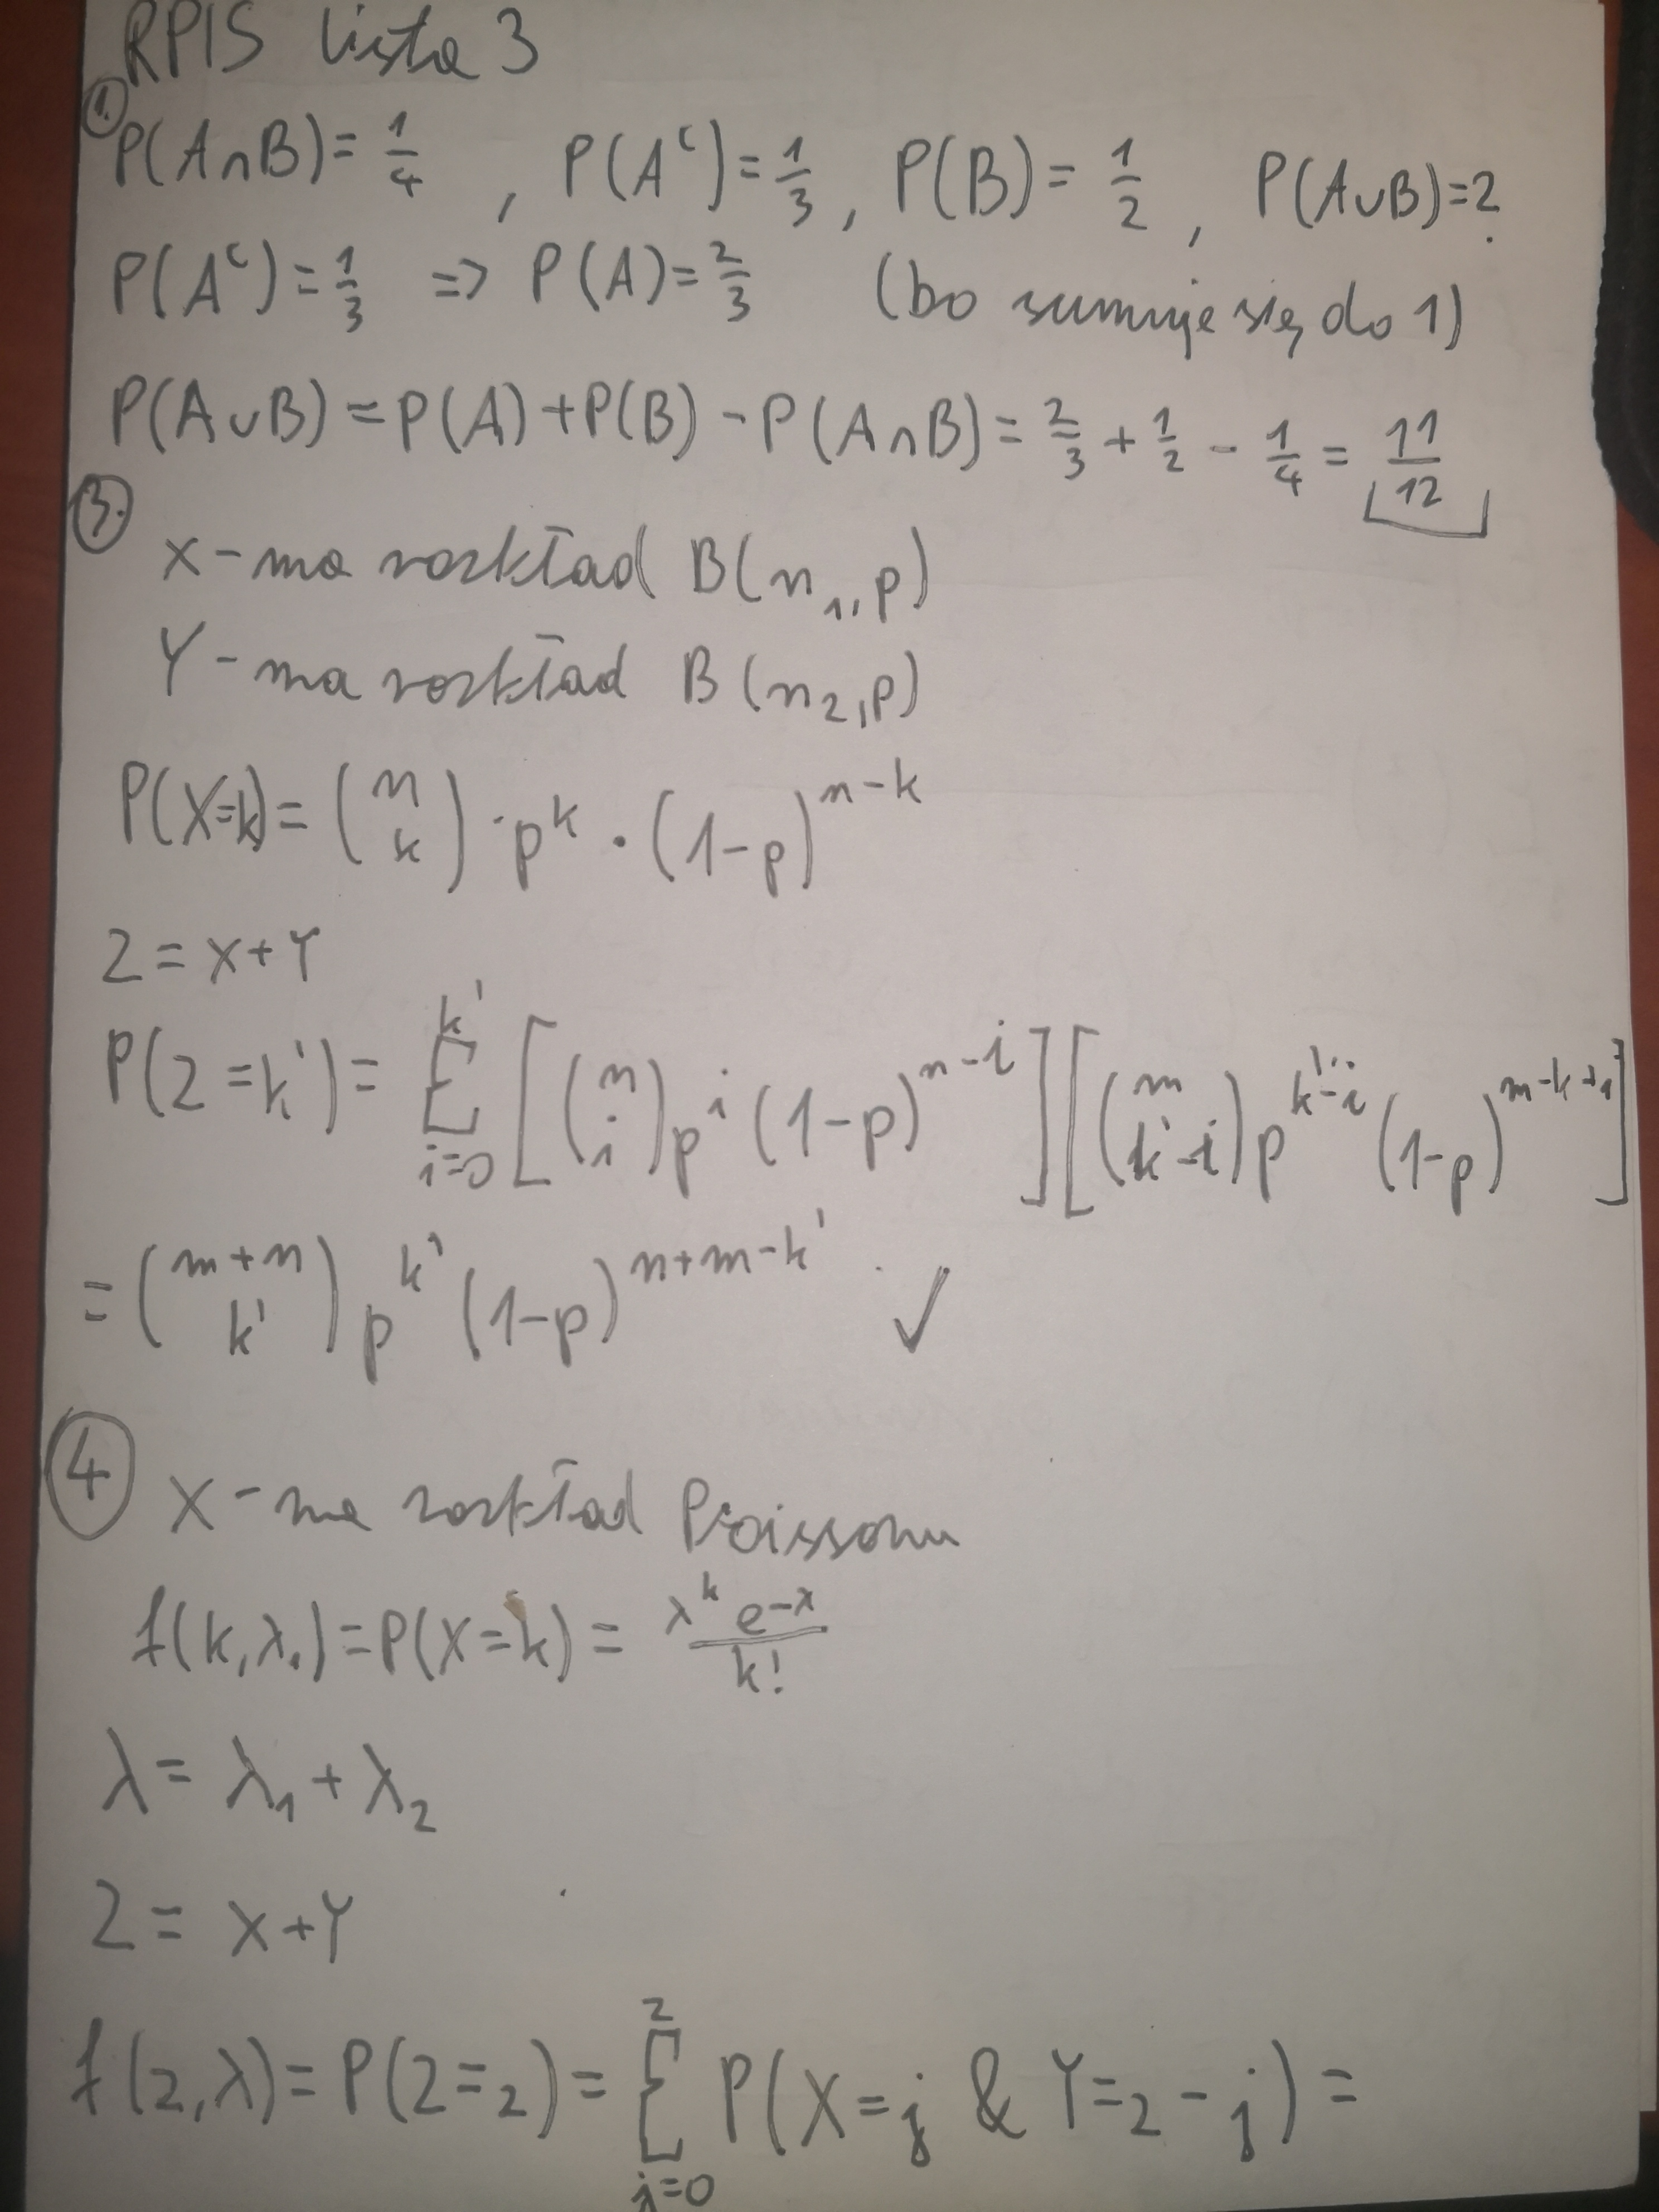 RPIS lista 3
1.
P(A∩B)= 1/4 , P(Aᶜ)= 1/3 , P(B)= 1/2 , P(A∪B)=?
P(Aᶜ)= 1/3 => P(A)= 2/3 (bo sumuje się do 1)
P(A∪B) = P(A)+P(B) - P(A∩B)= 2/3 + 1/2 - 1/4 = 11/12
3.
X - ma rozkład B(n₁, p)
Y - ma rozkład B(n₂, p)
P(X=k)= (n k) · p^k · (1-p)^(n-k)
Z = X+Y
P(Z=k')= Σ_{i=0}^{k'} [(n i) p^i (1-p)^(n-i)] [(m k'-i) p^(k'-i) (1-p)^(m-k+i)]
= (m+n k') p^k' (1-p)^(n+m-k') ✓
4
X - ma rozkład Poissonu
f(k,λ)=P(X=k)= λ^k e^-λ / k!
λ = λ₁ + λ₂
Z = X+Y
f(z,λ)= P(Z=z)= Σ_{j=0}^{z} P(X=j & Y=z-j) =